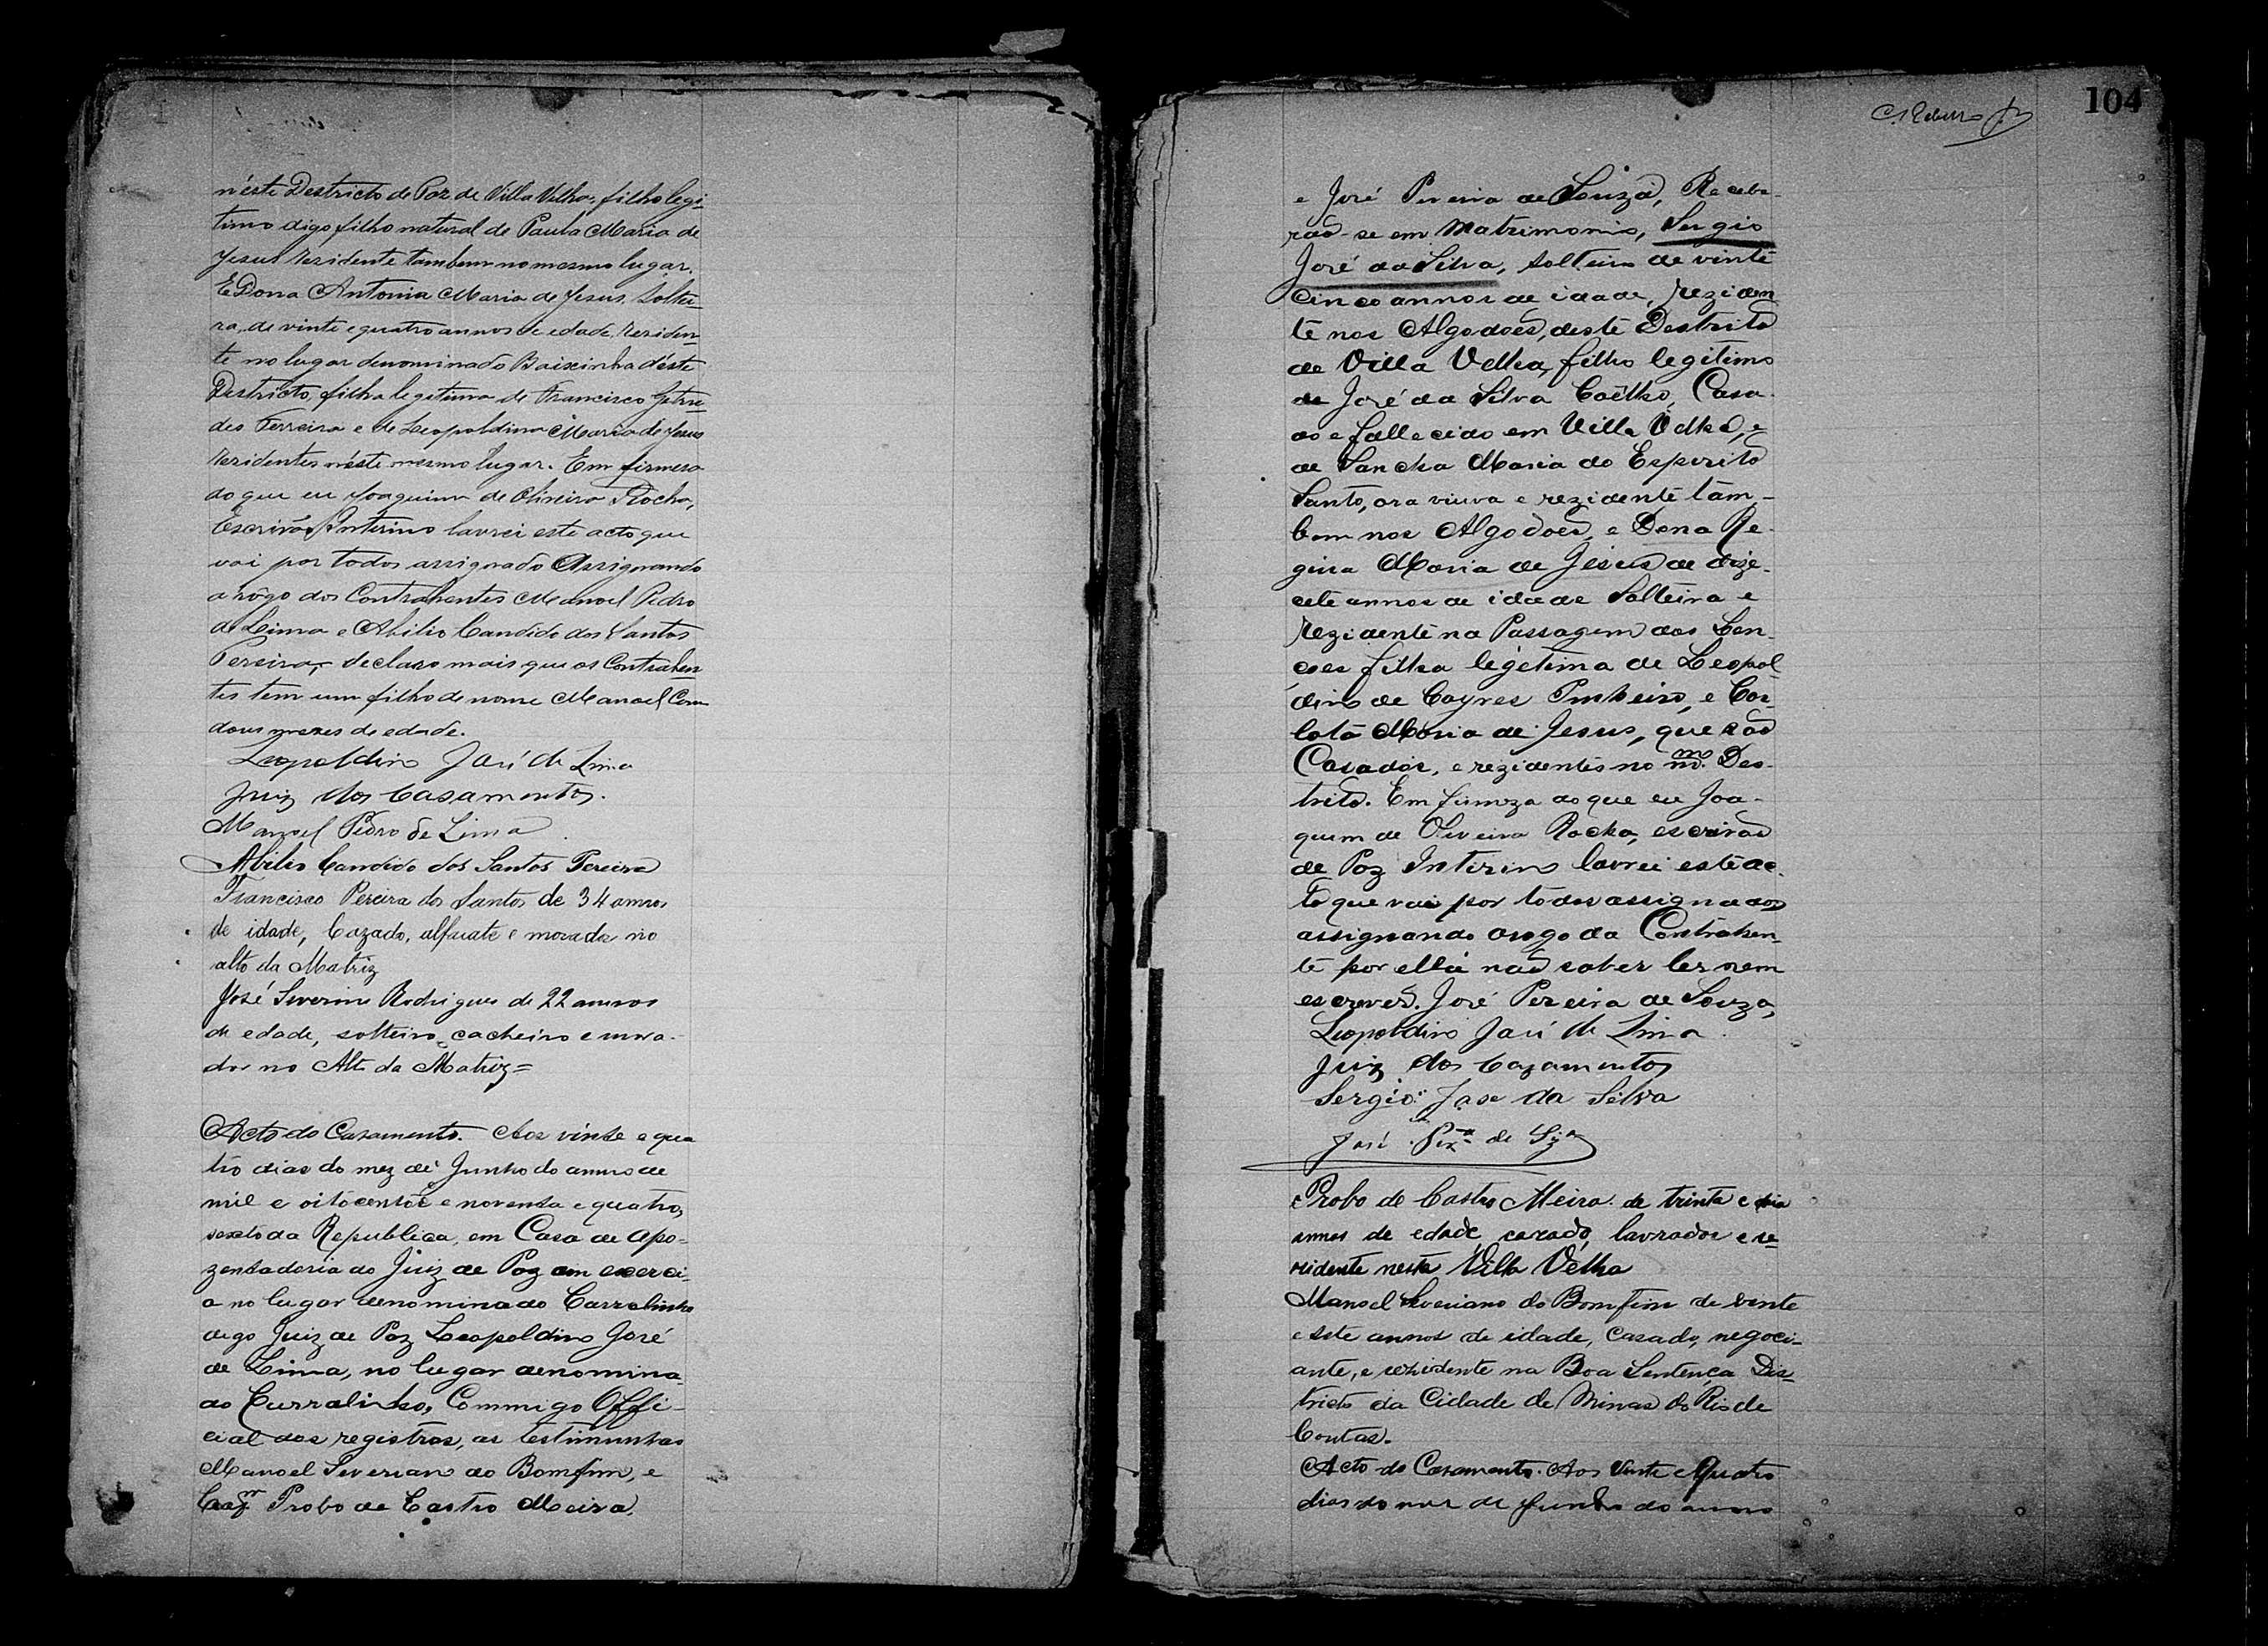 néste Destricto de Paz de Villa Velha, filho legi-
timo digo filho natural de Paula Maria de
Jesus rezidente tambem no mesmo lugar.
E Dona Antonia Maria de Jesus Soltei-
ra, de vinte e quatro annos de edade, reziden-
te no lugar denominado Baixinha déste
Destricto, filha legitima de Francisco
des Ferreira e de Leopoldina Maria de Jesus
rezidentes néste mesmo lugar. Em firmesa
do que eu Joaquim de Oliveira Rocha,
Escrivão Interino lavrei este acto que
vai por todos assignado Assignando
a rôgo dos Contrahentes Manoel Pedro
de Lima e Abilio Candido dos Santos
Pereira, declaro mais que os Contrahen-
tes tem um filho de nome Manoel Com
dous mezes de edade.
Leopoldino José de Lima
Juiz dos Casamentos.
Manoel Pedro de Lima
Abilio Candido dos Santos Pereira
Francisco Pereira dos Santos de 34 annos
de idade, Cazado, alfaiate e morador no
alto da Matriz
José Severino Rodrigues de 22 annos
de edade, solteiro, cacheiro e mora-
dor no Alto da Matriz=
Acto do Casamento. Aos vinte e qua
tro dias do mez de Junho do anno de
mil e oitocentos e noventa e quatro,
sexto da Republica, em Casa de apo-
zentadoria do Juiz de Paz em exerci-
o no lugar denominado Carralinho
digo Juiz de Paz Leopoldino José
de Lima, no lugar denomina-
do Curralinho, Commigo Offi-
cial dos registros, as testimunhas
Manoel Severiano do Bomfim, e
Probo de Castro Meira,
104
e José Pereira de Souza, Recebe-
rão-se em Matrimonio, Sergio
José da Silva, Solteiro de vinte
cinco annos de idade, reziden
te nos Algodoes, deste Destrito
de Villa Velha, filho legitimo
de José da Silva Coêlho, Casa-
do e fallecido em Villa Velha, e
de Sancha Maria do Esperito
Santo, ora viuva e rezidente tam-
bem nos Algodoes, e Dona Re-
gina Maria de Jesus de deze-
cete annos de idade Solteira e
rezidente na Passagem das
filha legetima de Leopol-
dino de Cayres Pinheiro, e Car-
lota Maria de Jesus, que são
Casados, e rezidentes no mmo. Des-
trito. Em firmeza do que eu Joa-
quim de Oliveira Rocha, escrivão
de Paz Interino lavrei este ac-
to que vai por todos assignados
assignando arogo da Contrahen-
te por ella não saber ler nem
escrever. José Pereira de Souza,
Leopoldino José de Lima
Juiz dos Cazamentos
Sergio Jose da Silva
José Pera de Sza
Probo de Castro Meira de trinta e
annos de edade, cazado, lavrador e re-
sidente nesta Villa Velha
Manoel Severiano do Bomfim de vinte
e sete annos de idade, Casado, negoci-
ante, e rezidente na Boa Sentença Dis-
tricto da Cidade de Minas do Rio de
Contas.
Acto do Casamento. Aos Vinte e Quatro
dias do mez de Junho do anno